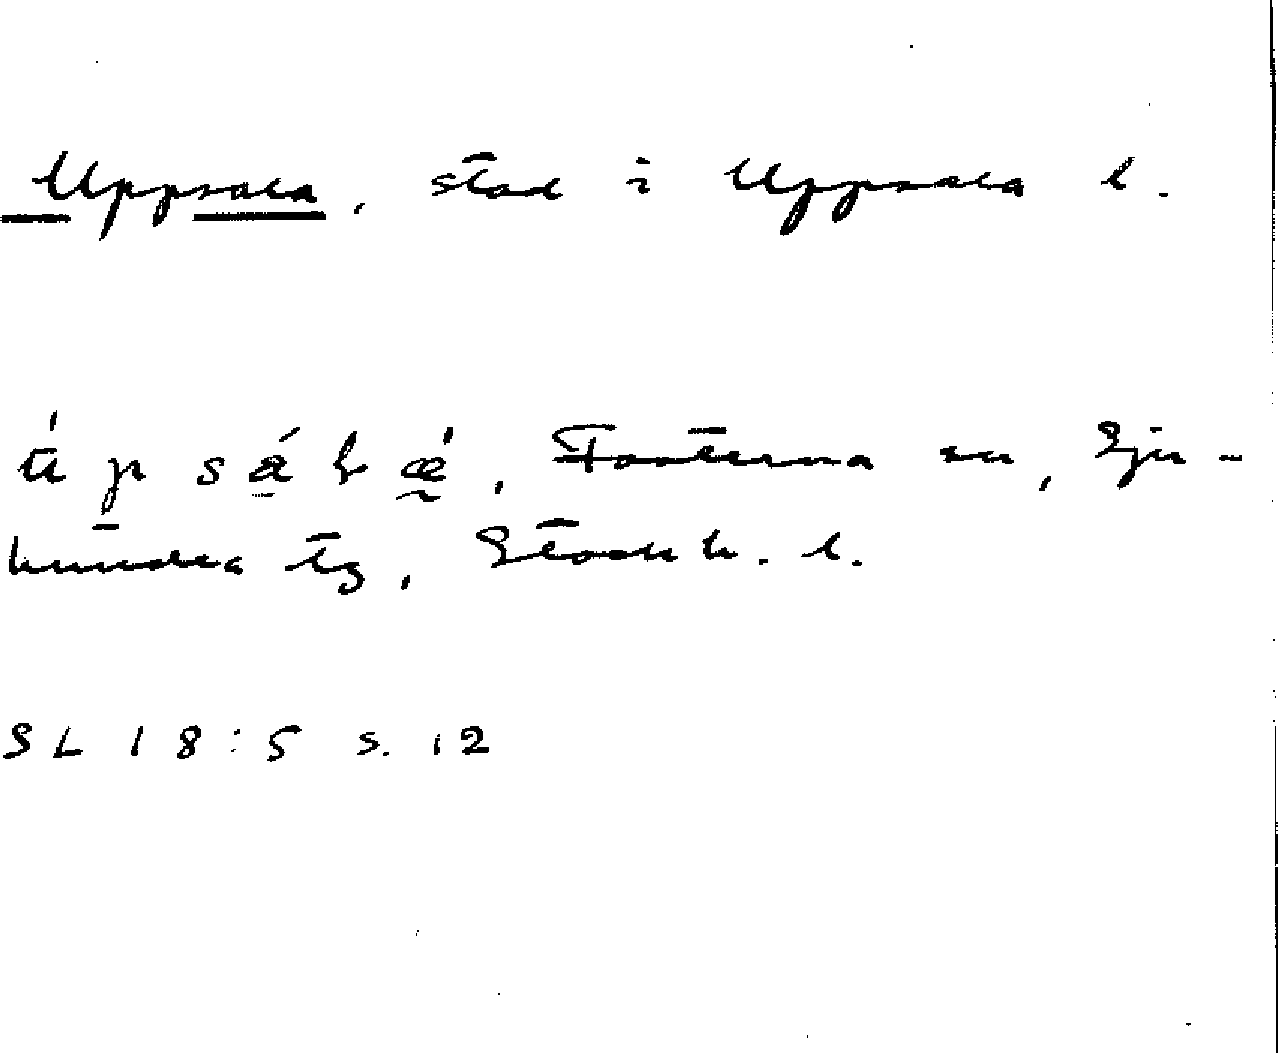 Uppsala, stad i Uppsala l.
Fasterna sn, Sju-
hundra tg, Stockh. l.
SL 18:5 s. 12